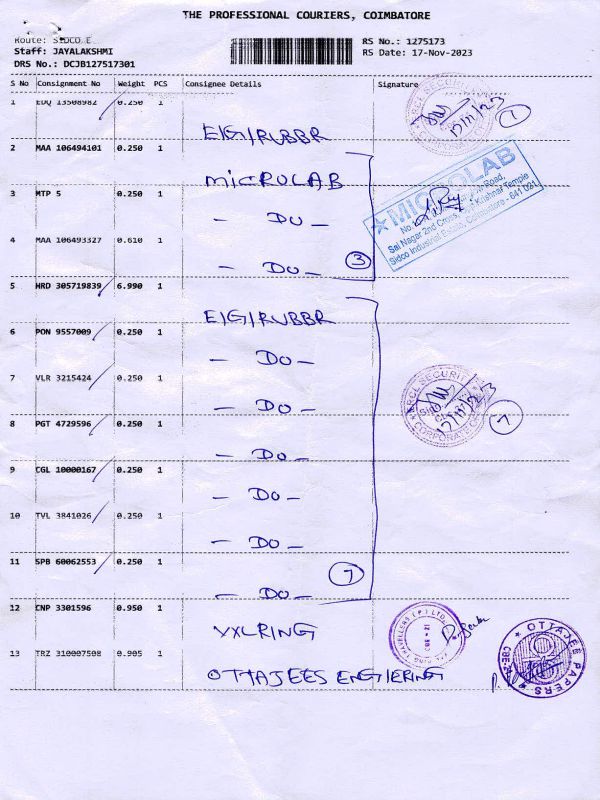 THE PROFESSIONAL COURIERS, COIMBATORE
Route: SIDCO E
Staff: JAYALAKSHMI
DRS No.: DCJB127517301
RS No.: 1275173
RS Date: 17-Nov-2023
S No Consignment No Weight PCS Consignee Details Signature
1 EDQ 13508982 0.250 1
EIGIRUBBR
17/11/23 1
2 MAA 106494101 0.250 1
MICROLAB
3 MTP 5 0.250 1
- DO -
MICROLAB
Sai Nagar 2nd Cross, Opp Krishnar Temple
Sidco Industrial Estate, Coimbatore - 641 021
4 MAA 106493327 0.610 1
- DO - 3
5 HRD 305719839 6.990 1
EIGIRUBBR
6 PON 9557009 0.250 1
- DO -
7 VLR 3215424 0.250 1
- DO -
ERCL SECURITY
CORPORATE
17/11/23 7
8 PGT 4729596 0.250 1
- DO -
9 CGL 10000167 0.250 1
- DO -
10 TVL 3841026 0.250 1
- DO -
11 SPB 60062553 0.250 1
- DO - 7
12 CNP 3301596 0.950 1
VXLRING
TRAVELLERS (P) LTD.
13 TRZ 310007508 0.905 1
OTTAJEES ENGIERING
OTTAJEE PAPERS